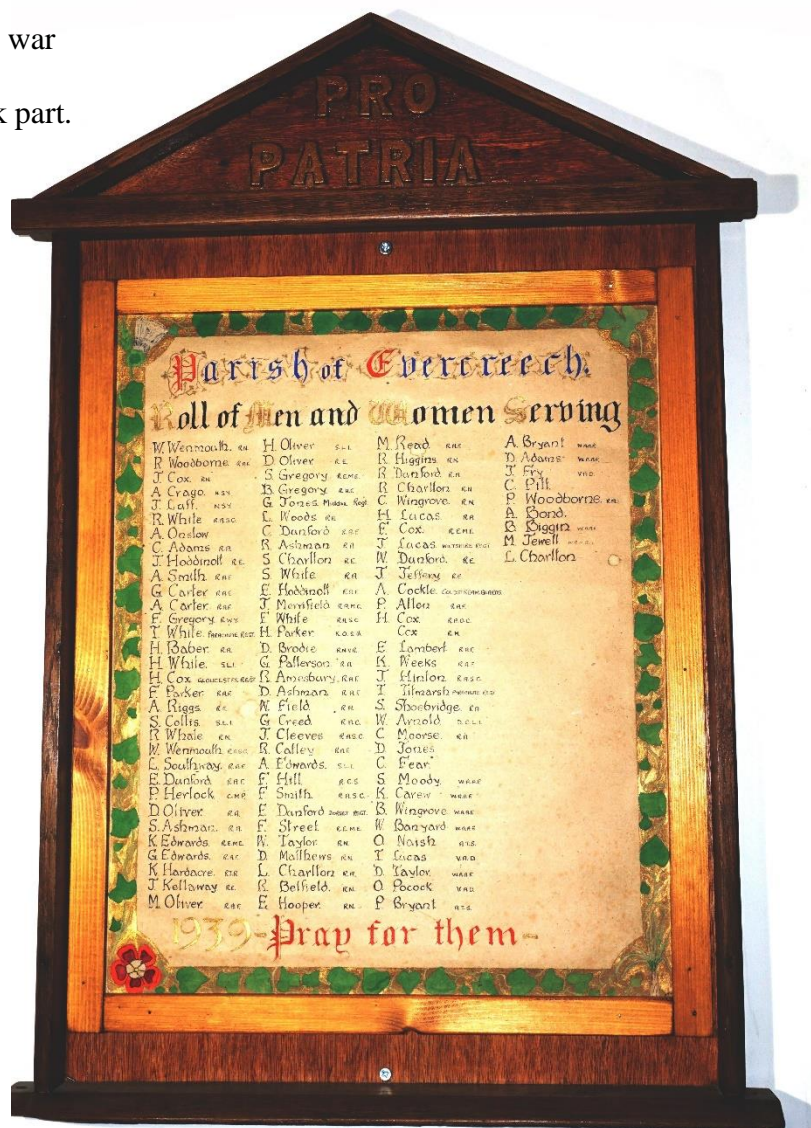 war
part.
PRO
PATRIA
Parish of Evercreech.
Roll of Men and Women Serving
W. Wenmouth. R.N.
R Woodborne R.A.F.
J Cox. R.N.
A Crago. N.S.Y.
J. Laff. N.S.Y.
R. White R.A.S.C.
A. Onslow
C. Adams R.A.
J. Hoddinott R.E.
A. Smith R.A.F.
G Carter R.A.F.
A Carter R.A.F.
F. Gregory
T White
H. Baber R.A.
H. White. S.L.I.
H. Cox
F. Parker R.A.F.
A. Riggs
S. Collis. S.L.I.
R Whale R.N.
W. Wenmouth
L. Southway. R.A.F.
E. Dunford R.A.F.
P. Herlock C.M.P.
D Oliver R.A.
S. Ashman. R.A.
K. Edwards. R.E.M.E.
G. Edwards. R.A.F.
K. Hardacre
J Kellaway R.E.
M. Oliver R.A.F.
H. Oliver S.L.I.
D. Oliver R.E.
S. Gregory R.E.M.E.
B. Gregory R.A.F.
G. Jones
L. Woods R.E.
C. Dunford R.A.F.
R. Ashman R.A.
S Charlton R.E.
S. White R.A.
E. Hoddinott R.A.F.
J. Merrifield
F White R.A.S.C.
H. Parker K.O.S.B.
D. Brodie R.N.V.R.
G. Patterson R.A.
R. Amesbury. R.A.F.
D. Ashman R.A.F.
W. Field R.N.
G Creed
J. Cleeves R.A.S.C.
R. Catley R.A.F.
A. Edwards. S.L.I.
F. Hill
F Smith R.A.S.C.
E Danford DORSET REGT.
F. Street R.E.M.E.
W. Taylor R.N.
D. Matthews R.N.
L. Charlton R.A.
R. Belfield. R.N.
E. Hooper. R.N.
M. Read R.A.F.
R. Higgins R.N.
R Danford R.A.
R Charlton R.N.
C Wingrove R.N.
H Lucas R.A.
F. Cox. R.E.M.E.
J. Lucas WILTSHIRE REGT.
W. Dunford. R.E.
J. Jeffery R.E.
A. Cockle COLDSTREAM GUARDS
P. Allen R.A.F.
H. Cox
Cox R.N.
E Lambert R.A.F.
K. Weeks R.A.F.
J. Hinton R.A.S.C.
T Titmarsh
S. Shoebridge R.A.
W. Arnold D.C.L.I.
C. Moorse. R.A.
D. Jones
C. Fear
S. Moody. W.A.A.F.
K. Carew W.A.A.F.
B. Wingrove W.A.A.F.
W Banyard W.A.A.F.
O. Naish A.T.S.
T Lucas V.A.D.
D. Taylor. W.A.A.F.
O Pocock V.A.D.
P Bryant A.T.S.
A. Bryant W.A.A.F.
D Adams W.A.A.F.
J Fry V.A.D.
C. Pitt
P Woodborne.
A. Bond.
B Biggin W.A.A.F.
M. Jewell
L. Charlton
1939-Pray for them-